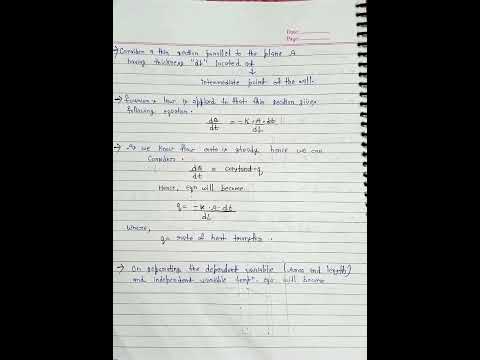 Date:
Page:
→ Consider a thin section parallel to the plane A
having thickness "dL" located at
↓
intermediate point of the wall.
→ Fourier's law is applied to that thin section gives
following equation.
dQ/dt = -K.A.dt/dL
→ As we know flow rate is steady hence we can
consider.
dQ/dt = constant = q
Hence, eqn will become
q = -K.A.dt/dL
Where,
q = rate of heat transfer.
→ On separating the dependent variable (Area and length)
and independent variable tempn. eqn will become